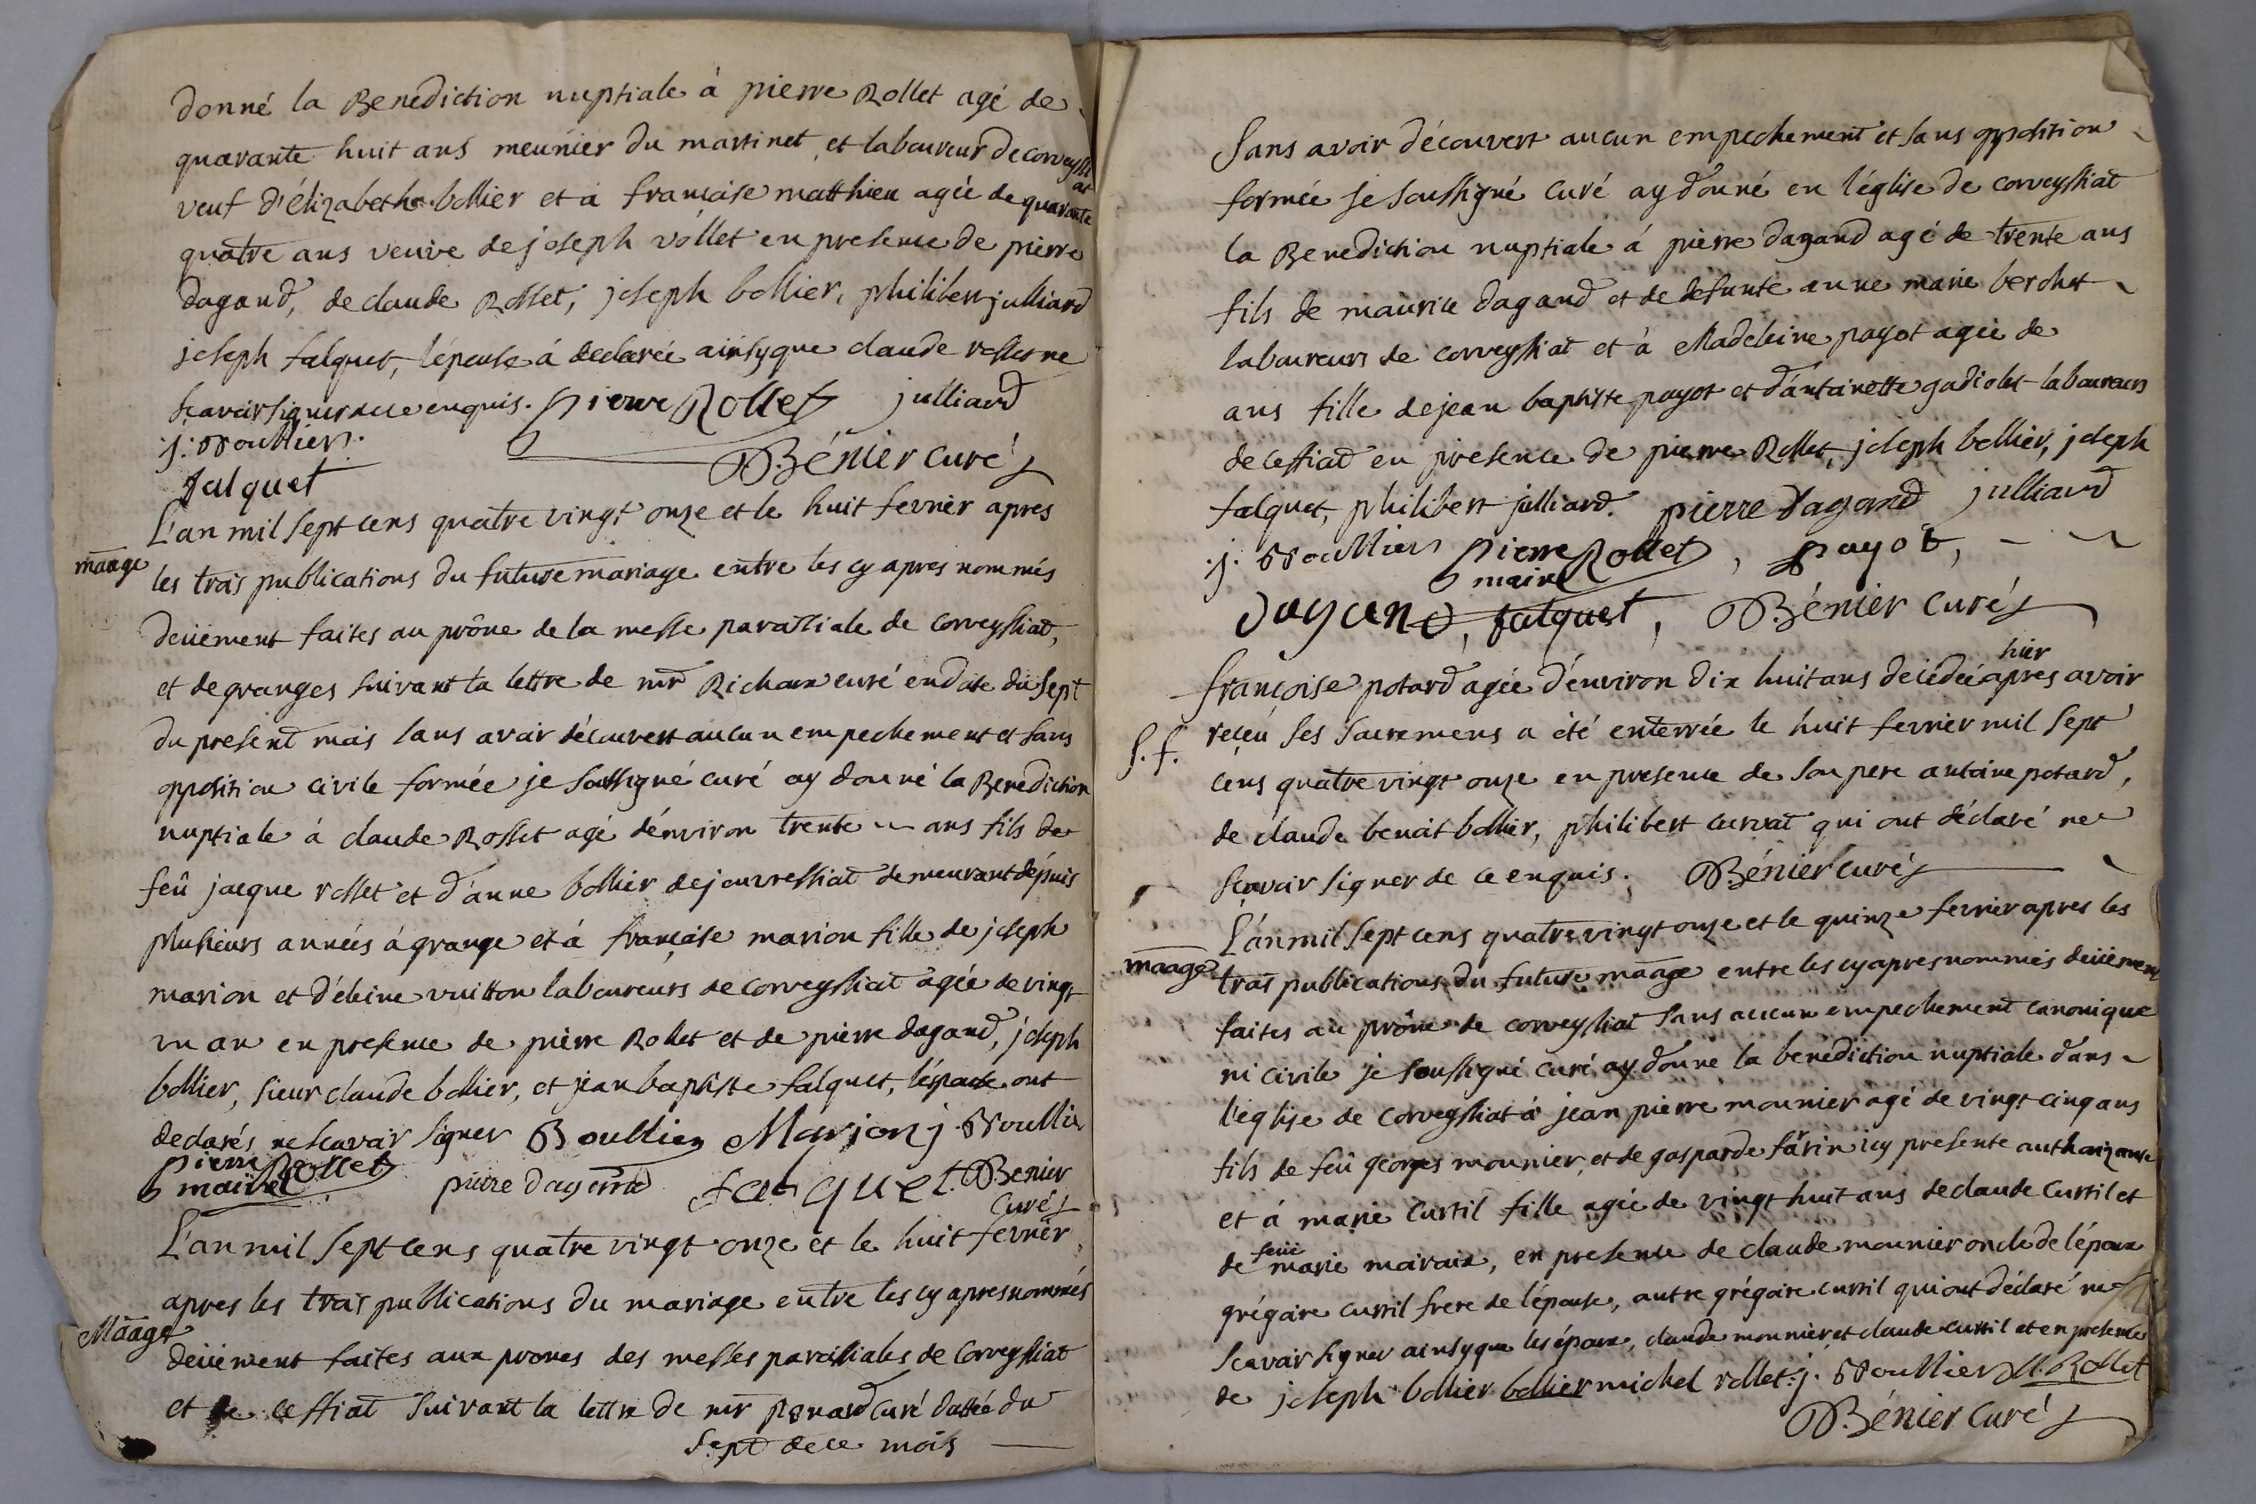 donné la Benediction nuptiale à pierre Rollet agé de
quarante huit ans meunier du martinet et laboureur de corveyssiat
veuf d'élizabeth bollier et à francoise matthieu agée de quarante
quatre ans veuve de joseph vollet en presence de pierre
dagand, de claude Rosset, joseph bollier, philibert julliard
joseph falquet, l'épouse à declarée ainsy que claude rosset ne
scavoir signer de ce enquis. pierre Rollet julliard
j. Boullier.
falquet Bénier curé
L'an mil sept cens quatre vingt onze et le huit fevrier apres
mãage les trois publications du future mariage entre les cy apres nommés
deüement faites au prône de la messe paroissiale de Corveyssiat,
et de granges suivant la lettre de mr Richoux curé en date du sept
du present mois sans avoir découvert aucun empechement et sans
opposition civile formée je soussigné curé ay donné la Benediction
nuptiale à claude Rosset agé d'environ trente ans fils de
feû jacque rosset et d'anne bollier de jouvressiat demeurant depuis
plusieurs années à grange et à francoise marion fille de joseph
marion et d'éleine vuitton laboureurs de corveyssiat agée de vingt
un an en presence de pierre Rollet et de pierre dagand, joseph
bollier, sieur claude bollier, et jean baptiste falquet, l'épouse ont
declarés ne scavoir signer Boullier Marion j. Boullier
pierre Rollet
maire pierre dagand falquet. Benier
curé
L'an mil sept cens quatre vingt onze et le huit fevrier
apres les trois publications du mariage entre les cy apres nommés
Mãage deüement faites aux prones des messes paroissiales de Corveyssiat
et de ceffiat suivant la lettre de mr Renard curé dattée du
sept de ce mois
sans avoir découvert aucun empechement et sans opposition
formée je soussigné curé ay donné en l'église de corveyssiat
la Benediction nuptiale à pierre dagand agé de trente ans
fils de maurice dagand et de defunte anne marie berchet
laboureurs de corveyssiat et à Madeleine payot agée de
ans fille de jean baptiste payot et d'antoinette gadiolet laboureurs
de ceffiat en presence de pierre Rollet, joseph bollier, joseph
falquet, philibert julliard. pierre dagand julliard
j. Boullier pierre Rollet, payot,
maire
dagand, falquet, Bénier curé
hier
francoise potard agée d'environ dix huit ans decédée apres avoir
S. f. reçeu ses sacremens a été enterrée le huit fevrier mil sept
cens quatre vingt onze en presence de son pere antoine potard,
de claude benoit bollier, philibert curvat qui ont déclaré ne
scavoir signer de ce enquis. Bénier curé
L'an mil sept cens quatre vingt onze et le quinze fevrier apres les
mãage trois publications du future mãage entre les cy apres nommés deüement
faites au prône de corveyssiat sans aucun empechement canonique
ni civile je soussigné curé ay donné la benediction nuptiale dans
l'église de corveyssiat à jean pierre mounier agé de vingt cinq ans
fils de feû georges mounier, et de gasparde farin icy presente authorizante
et à marie curtil fille agée de vingt huit ans de claude curtil et
feüe
de marie mairaix, en presence de claude mounier oncle de l'époux
grégoire curtil frere de l'épouse, autre grégoire curtil qui ont déclaré ne
scavoir signer ainsy que les époux, claude mounier et claude curtil et en presence
de joseph bollier bollier michel rollet. j. Boullier M. Rollet
Bénier curé